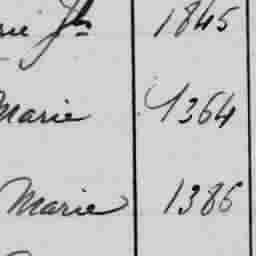 1845
Marie 1364
Marie 1386